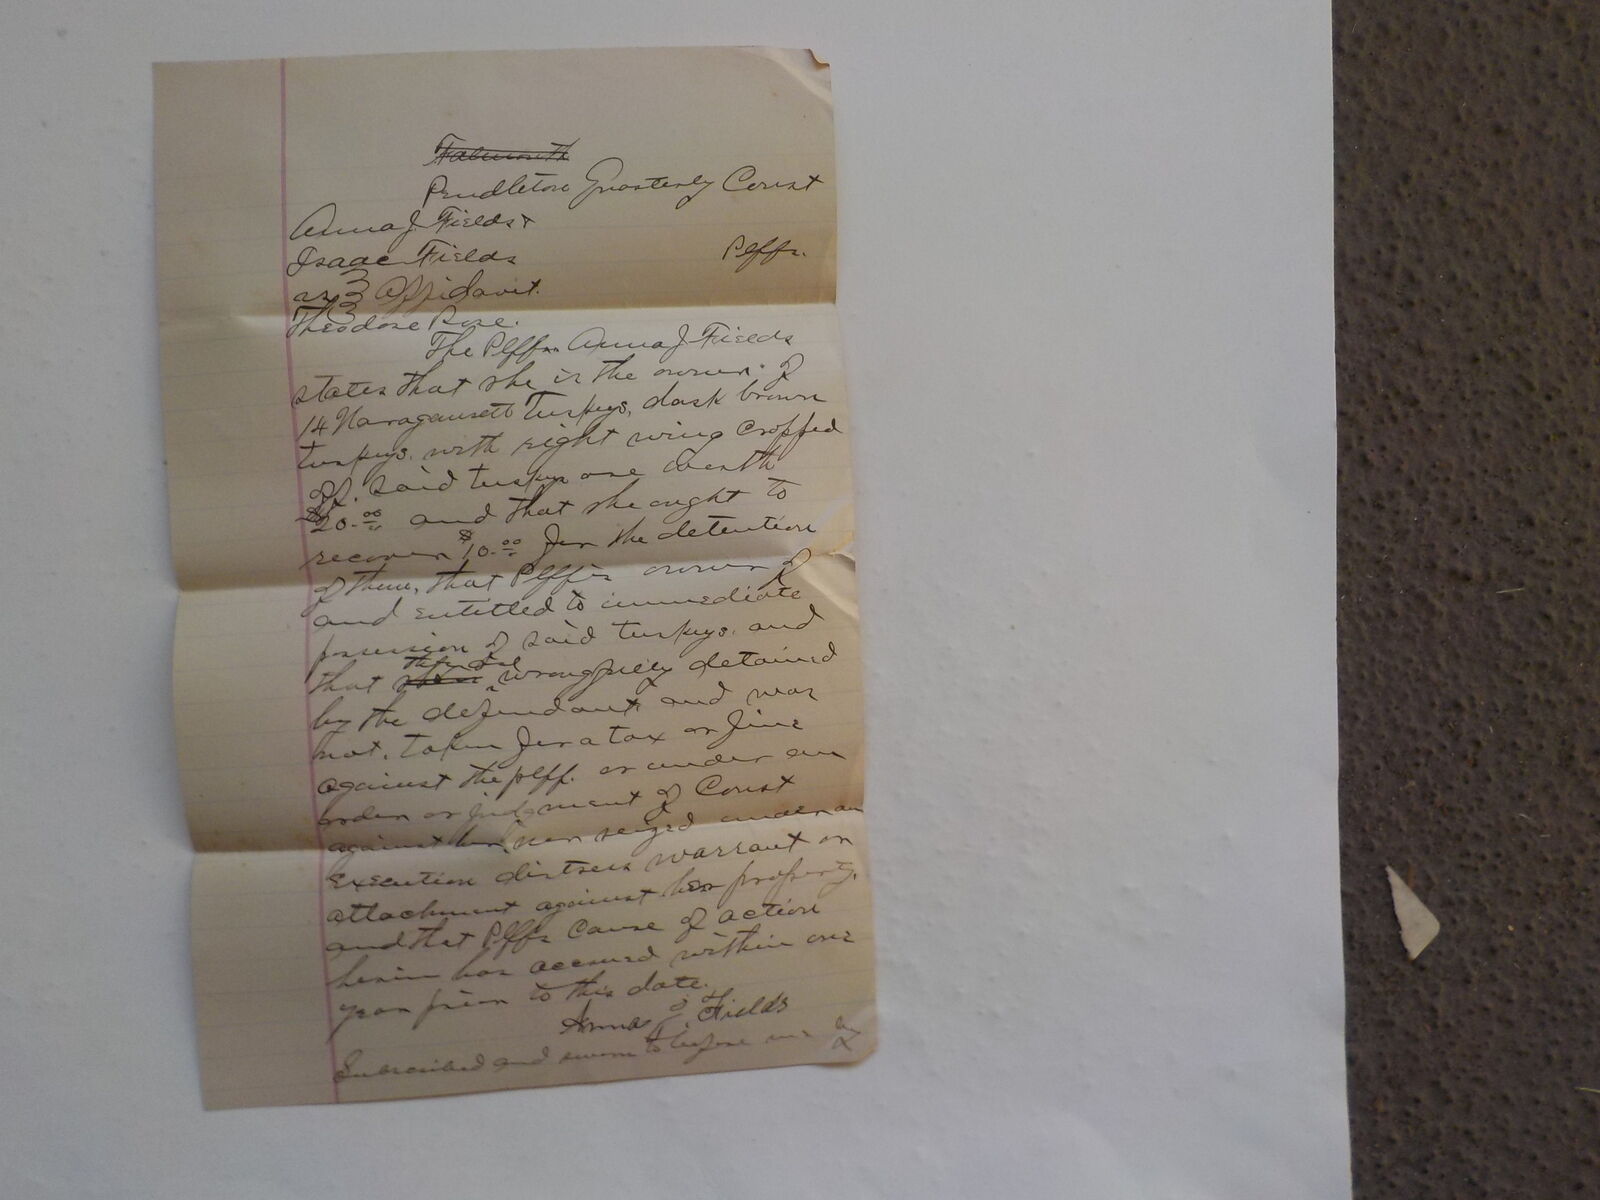 Falmouth
Pendleton Quarterly Court
Anna J Fields +
Isaac Fields Plffs.
as 3 Affidavit.
Theodore Rose.
The Plff Anna J Fields
states that she is the owner of
14 Narragansett Turkeys, dark brown
turkeys, with right wing cropped
off. Said turkeys are worth
$20.00 and that she ought to
recover $10.00 for the detention
of them, that Plff is owner of
and entitled to immediate
possession of said turkeys. and
that they are wrongfully detained
by the defendant and was
not, taken for a tax or fine
against the plff. or under an
order or judgment of Court
against her, nor seized under an
execution distress warrant or
attachment against her property,
and that Plffs cause of action
herin has accrued within one
year prior to this date.
Anna J Fields
Subscribed and sworn to before me by